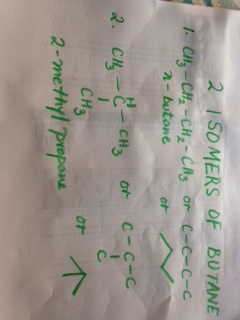 2 ISOMERS OF BUTANE
1. CH3-CH2-CH2-CH3 or C-C-C-C
n-butane or
H
2. CH3-C-CH3 or C-C-C
CH3 C
2-methyl propane or